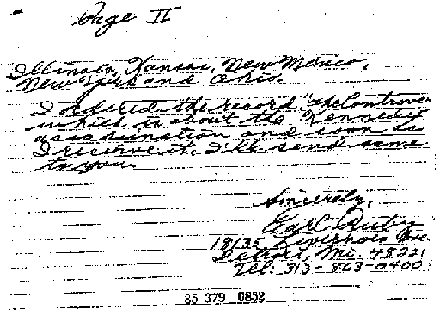 Page II
Illinois, Kansas, New Mexico,
New York and Ohio.
I ordered the record "The Controversy
which is about the Kennedy
assassination and soon as
I receive it, I'll send same
to you.
Sincerely,
18135 Livernois Ave
Detroit, Mi. 48221
Tel: 313-863-0400
85 379 0852